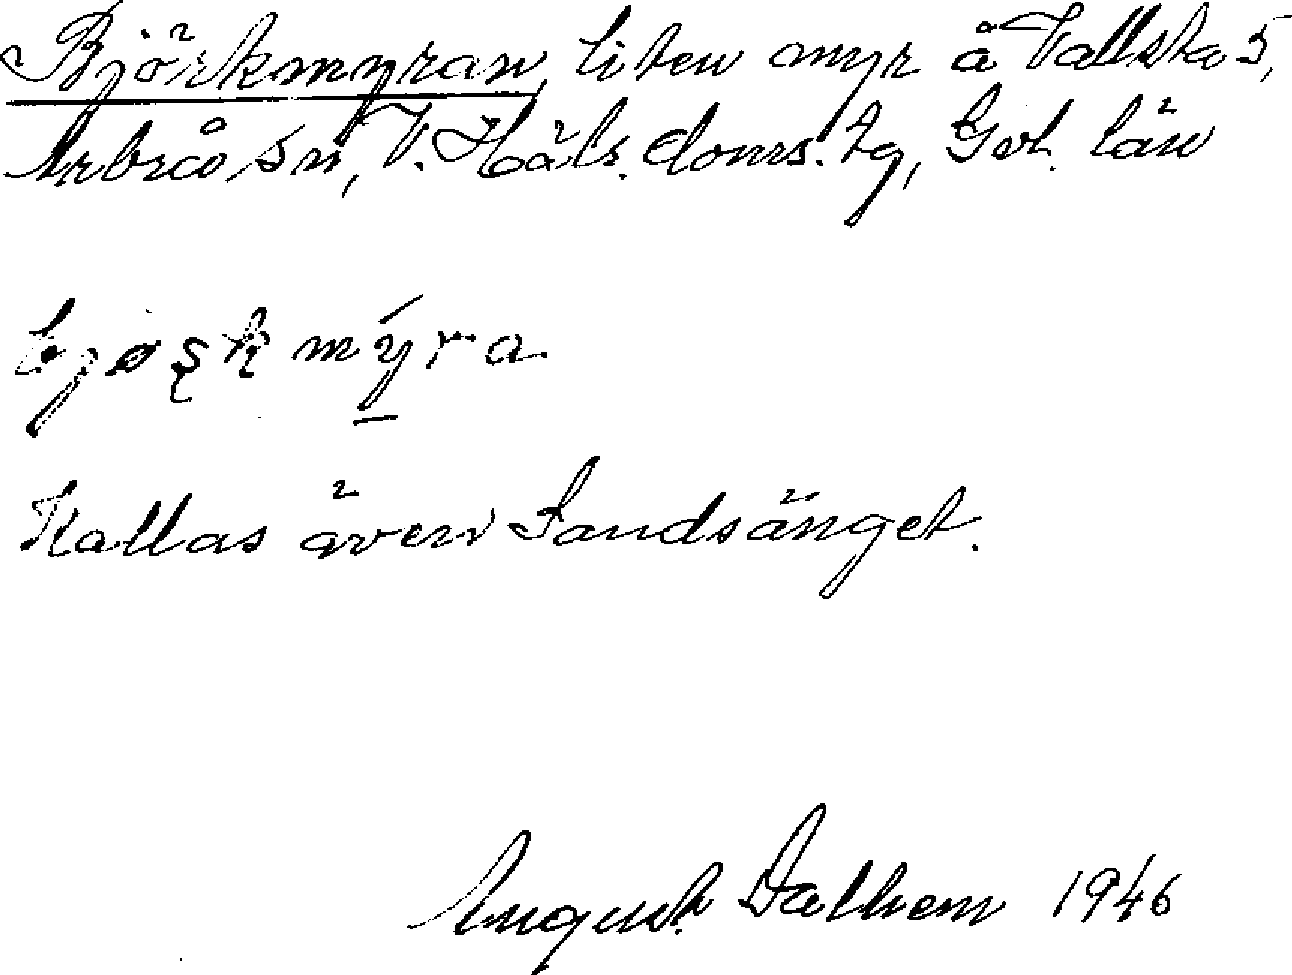 Björkmyran, liten myr å Vallsta 5,
Arbrå sn, V. Häls. doms. tg, Gvl. län
bjøşkmýra
Kallas även Sandsänget.
August Dalhem 1946